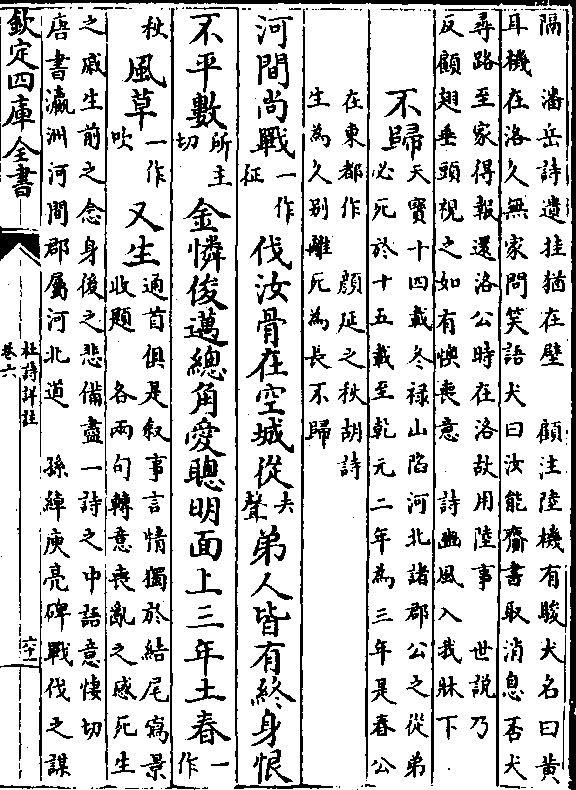 隔　潘岳詩遺挂猶在壁　顧注陸機有駿犬名曰黄
耳機在洛久無家問笑語犬曰汝能齎書取消息否犬
尋路至家得報還洛公時在洛故用陸事　世說乃
反顧翅垂頭視之如有懊喪意　詩豳風入我牀下
不歸天寶十四載冬祿山陷河北諸郡公之從弟
必死於十五載至乾元二年為三年是春公
在東都作　顔延之秋胡詩
生為久别離死為長不歸
河間尚戰一作征伐汝骨在空城從去聲弟人皆有終身恨
不平數所主切金憐俊邁總角愛聰明面上三年土春一作
秋風草一作吹又生通首俱是叙事言情獨於結尾寫景
收題　各兩句轉意喪亂之感死生
之戚生前之念身後之悲備盡一詩之中語意悽切
唐書瀛洲河間郡屬河北道　孫綽庾亮碑戰伐之謀
欽定四庫全書
杜詩詳註
卷六
六十一